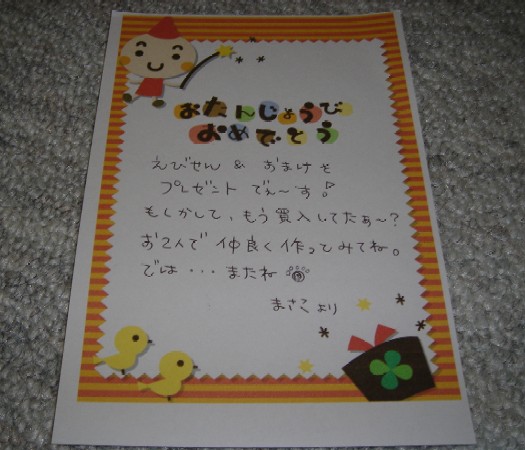 おたんじょうび
おめでとう
えびせん & おまけを
プレゼント でぇ〜す!
もしかして、もう買入してたぁ〜?
お2人で 仲良く 作ってみてね。
では・・・またね
まさこ より